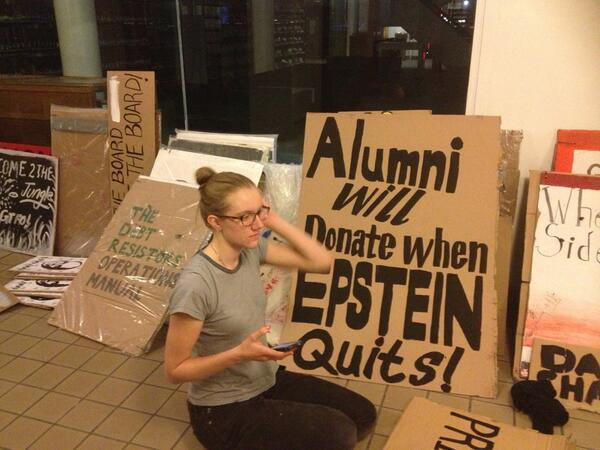 COME 2 THE
Jungle
THE BOARD
THE BOARD!
THE
DEBT
RESISTORS'
OPERATIONS
MANUAL
Alumni
will
Donate when
EPSTEIN
Quits!
Side